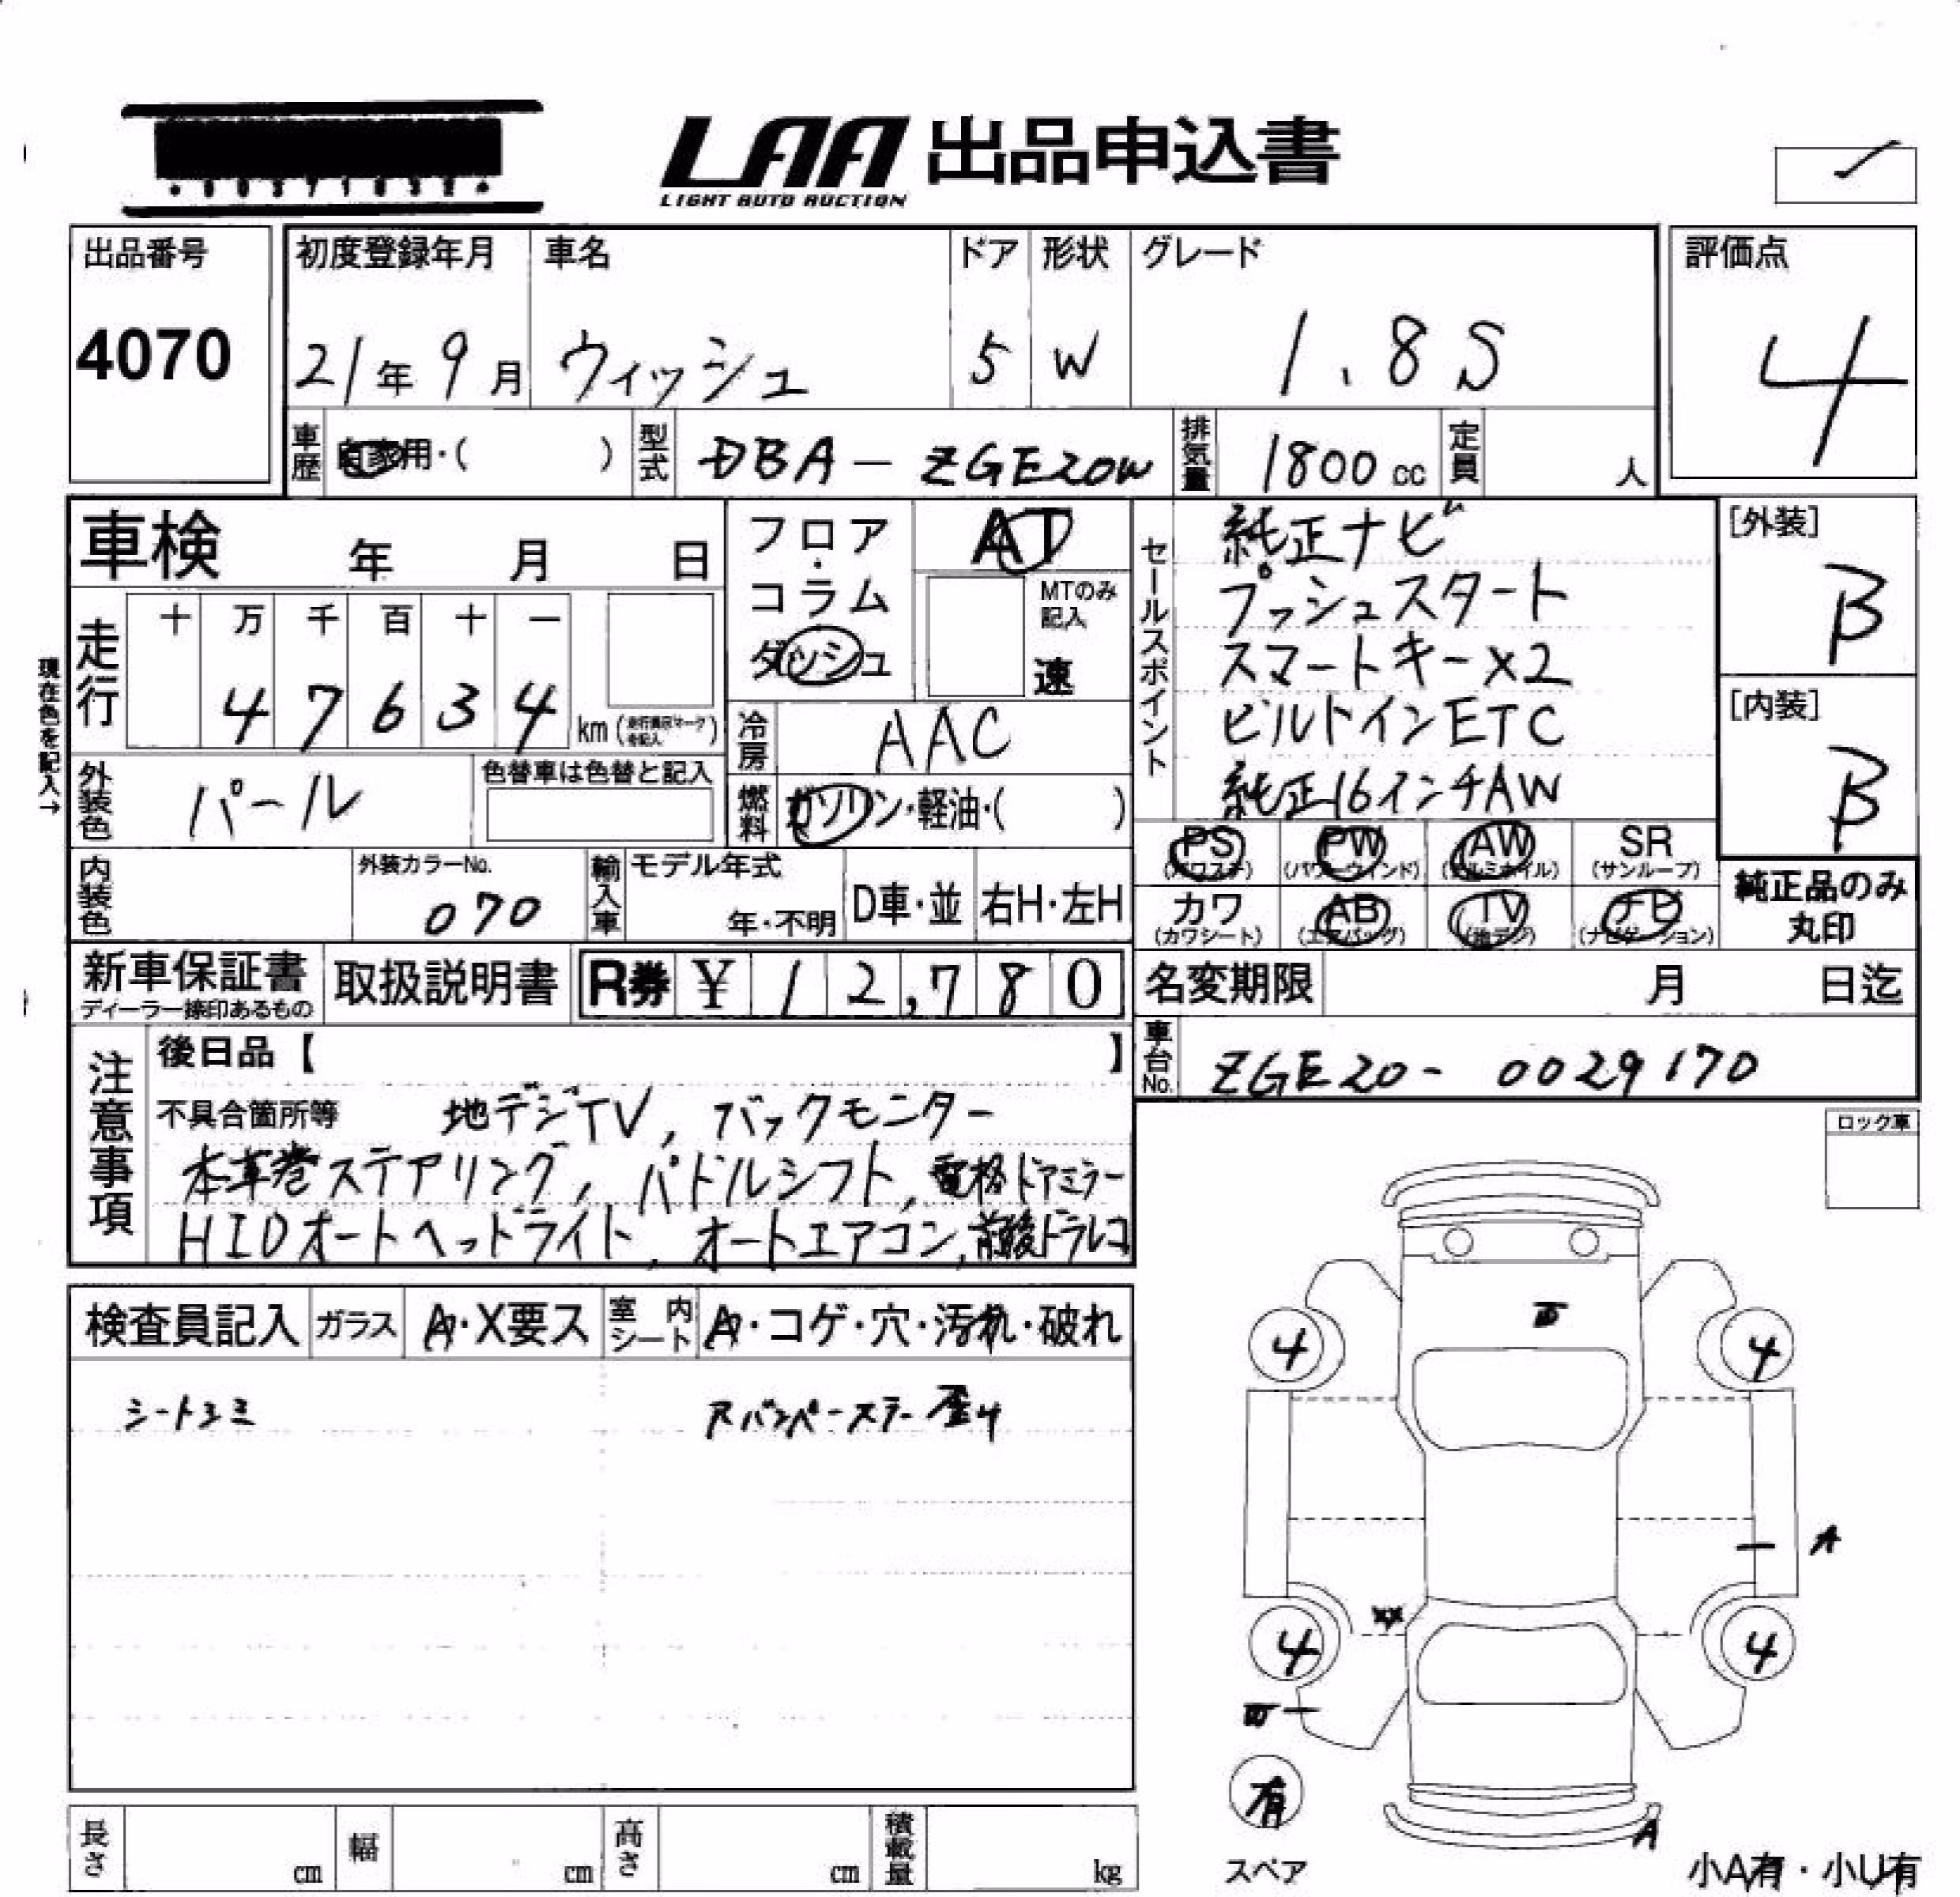 LAA 出品申込書
LIGHT AUTO AUCTION
出品番号 初度登録年月 車名 ドア 形状 グレード 評価点
4070 21年 9月 ウィッシュ 5 W 1.8S 4
車歴 自家用・( ) 型式 DBA-ZGE20W 排気量 1800cc 定員 人
車検 年 月 日
フロア・コラム
ダッシュ
AT
MTのみ記入
速
セールスポイント
純正ナビ
プッシュスタート
スマートキー×2
ビルトインETC
純正16インチAW
[外装]
B
[内装]
B
現在色を記入→
走行 十 万 千 百 十 一
4 7 6 3 4 km (走行表示マークを記入)
冷房 AAC
外装色 パール 色替車は色替と記入
燃料 ガソリン・軽油・( )
PS (パワステ) PW (パワーウィンド) AW (アルミホイル) SR (サンルーフ)
カワ (カワシート) AB (エアバッグ) TV (地デジ) ナビ (ナビゲーション)
純正品のみ
丸印
内装色 外装カラーNo. 070 輸入車 モデル年式 年・不明 D車・並 右H・左H
新車保証書 ディーラー捺印あるもの 取扱説明書 R券 ¥12,780 名変期限 月 日迄
車台No. ZGE20-0029170
注意事項
後日品【 】
不具合箇所等 地デジTV, バックモニター
本革巻ステアリング, パドルシフト, 電格ドアミラー
HIDオートヘッドライト, オートエアコン, 前後ドラレコ
ロック車
検査員記入 ガラス A・X要ス 室内シート A・コゲ・穴・汚れ・破れ
シートシミ
バンパーステー歪み
4 4
A
4 4
有
スペア
A
小A有・小U有
長さ cm 幅 cm 高さ cm 積載量 kg